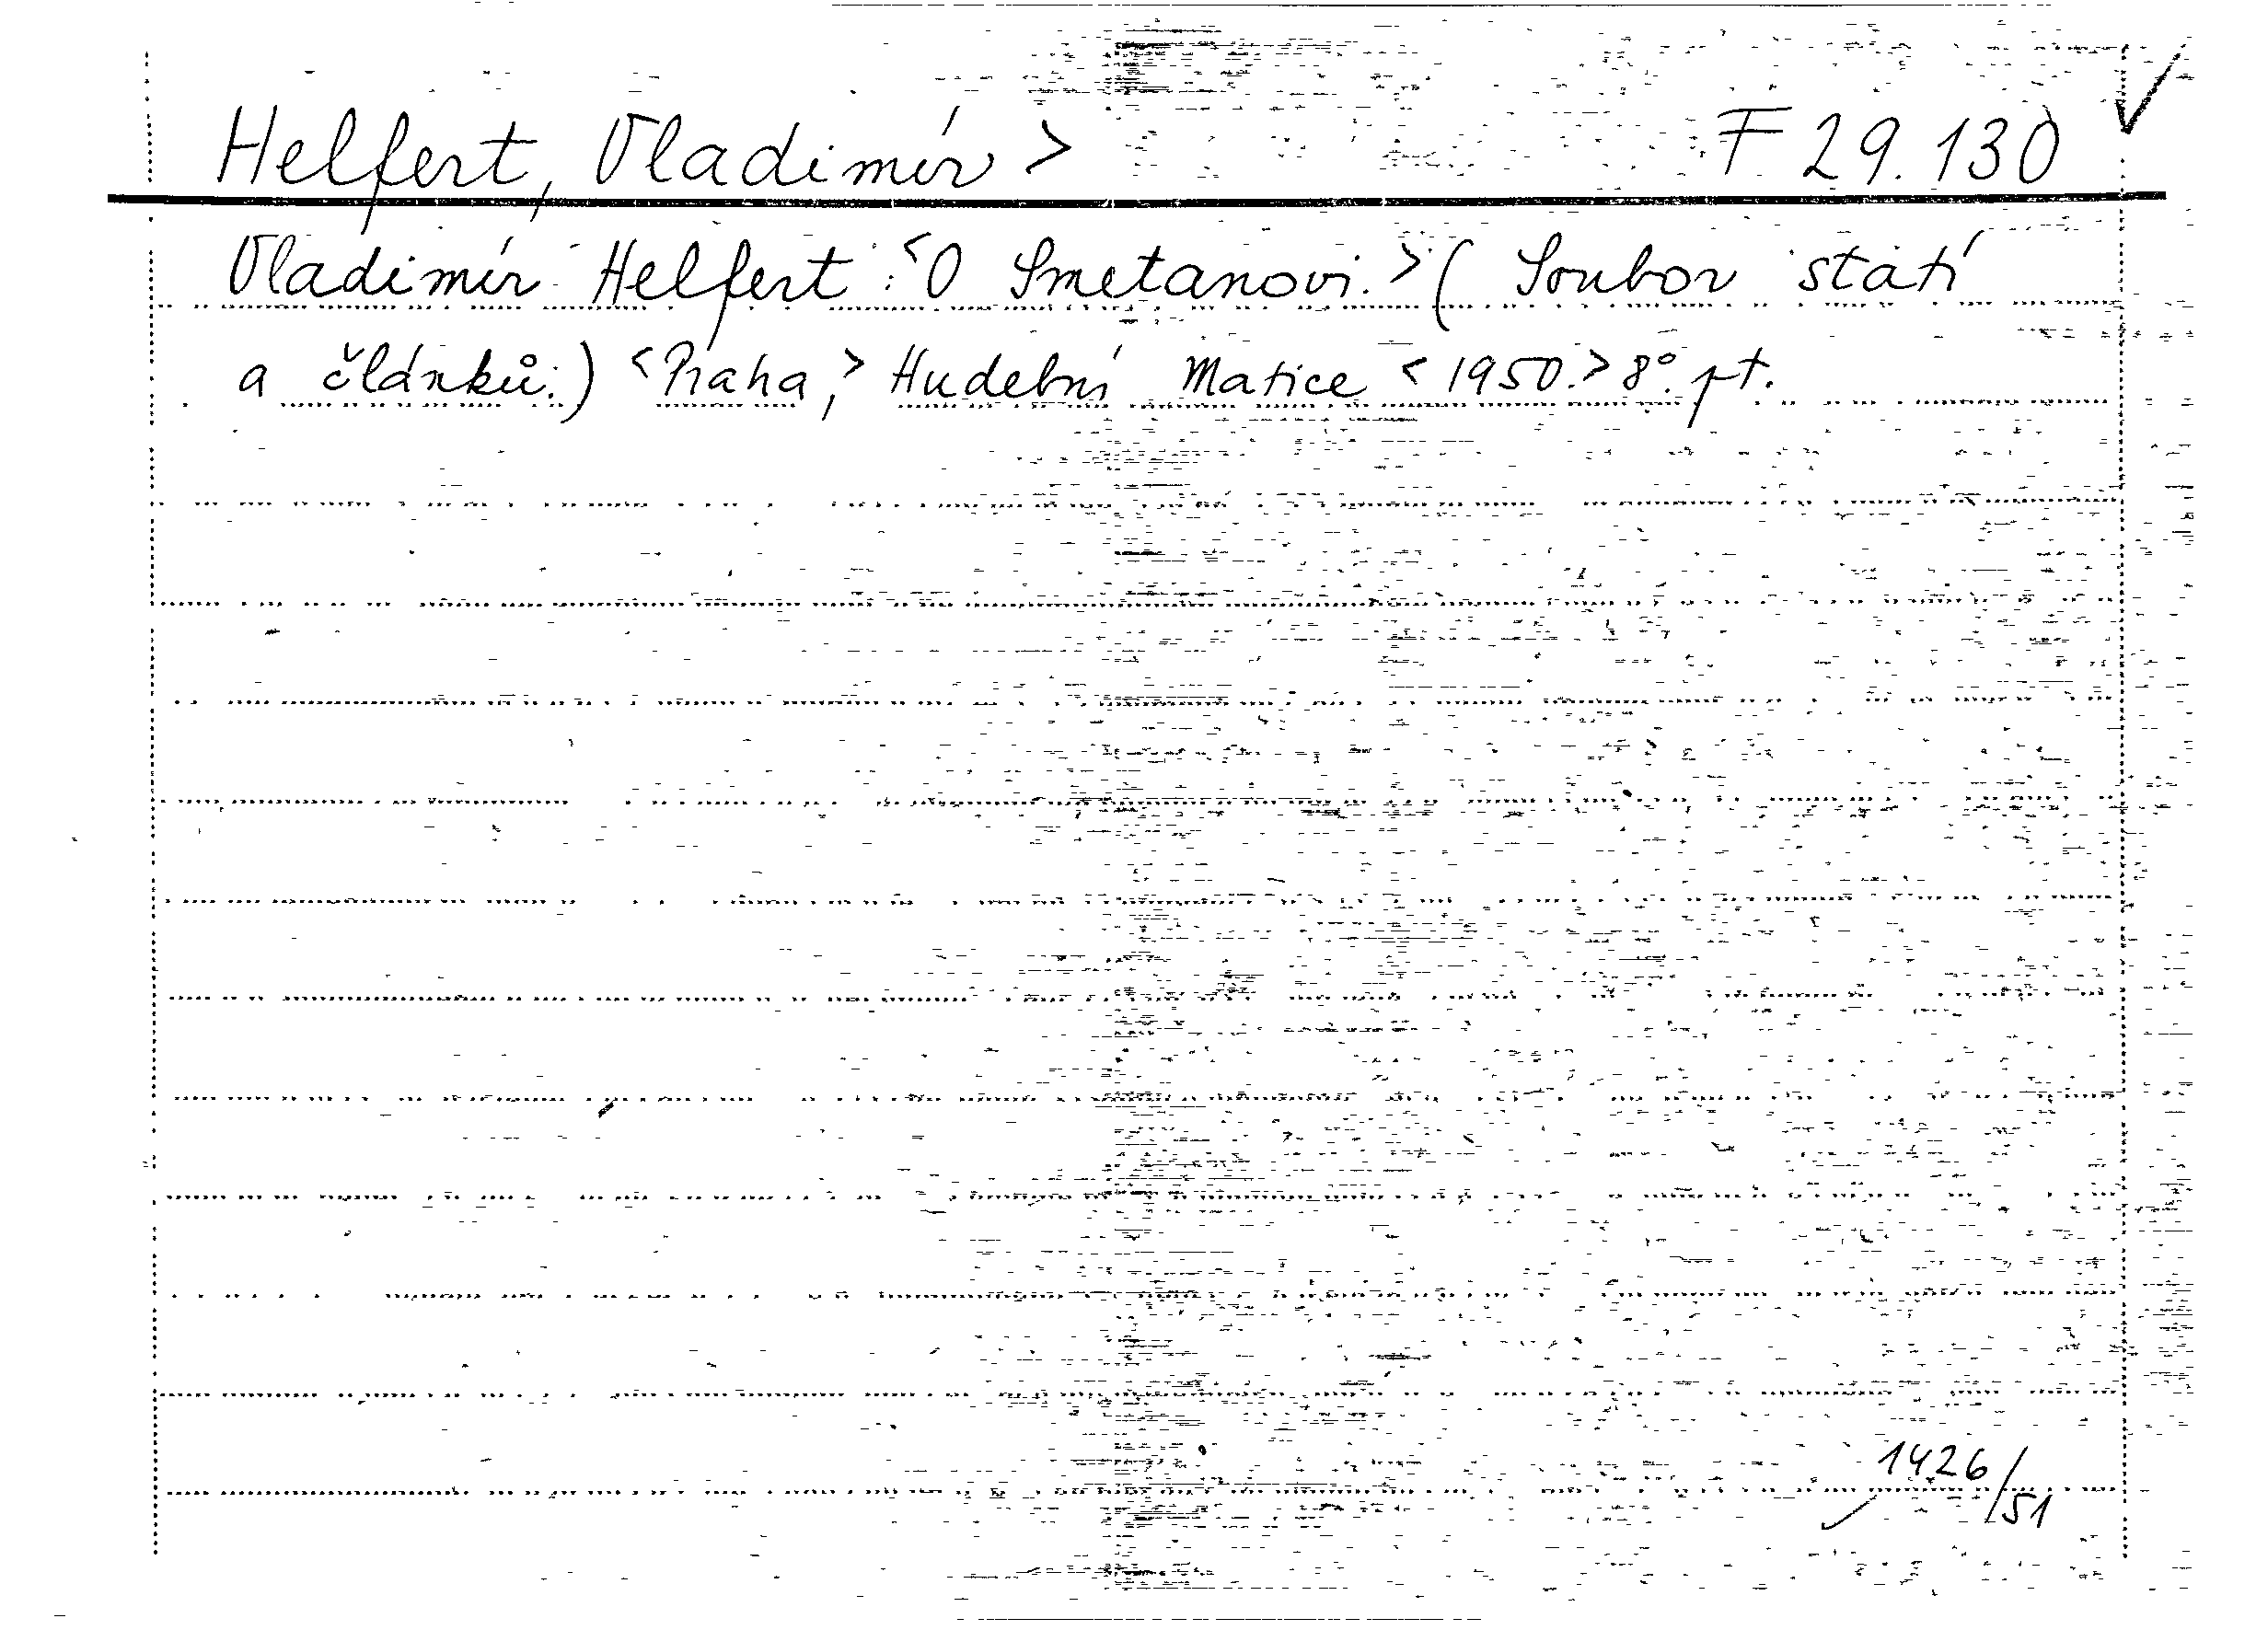 Helfert, Vladimír > F 29.130
Vladimír Helfert: <O Smetanovi.> (Soubor statí
a článků.) <Praha,> Hudební Matice <1950.> 8°. pt.
1426/51